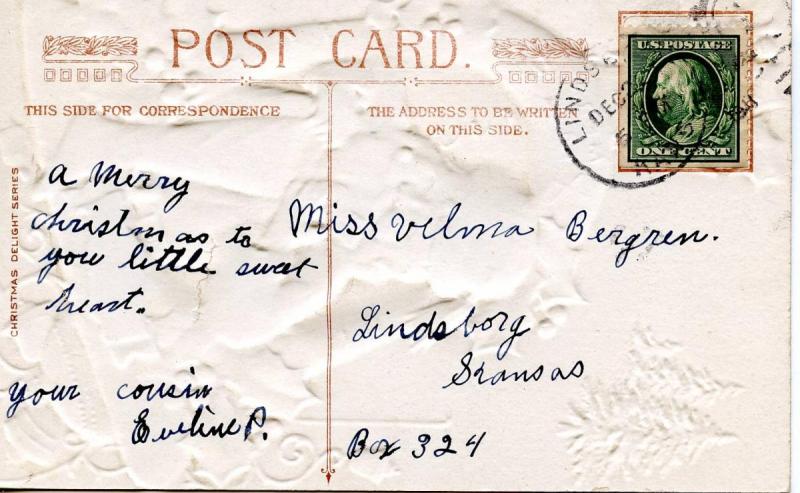 POST CARD.
THIS SIDE FOR CORRESPONDENCE
THE ADDRESS TO BE WRITTEN
ON THIS SIDE.
CHRISTMAS DELIGHT SERIES
U.S. POSTAGE
ONE CENT
LINDS
DEC
KA
a Merry
christmas to
you little sweet
heart.
your cousin
Eveline P.
Miss Velma Bergren.
Lindsborg
Kansas
Box 324